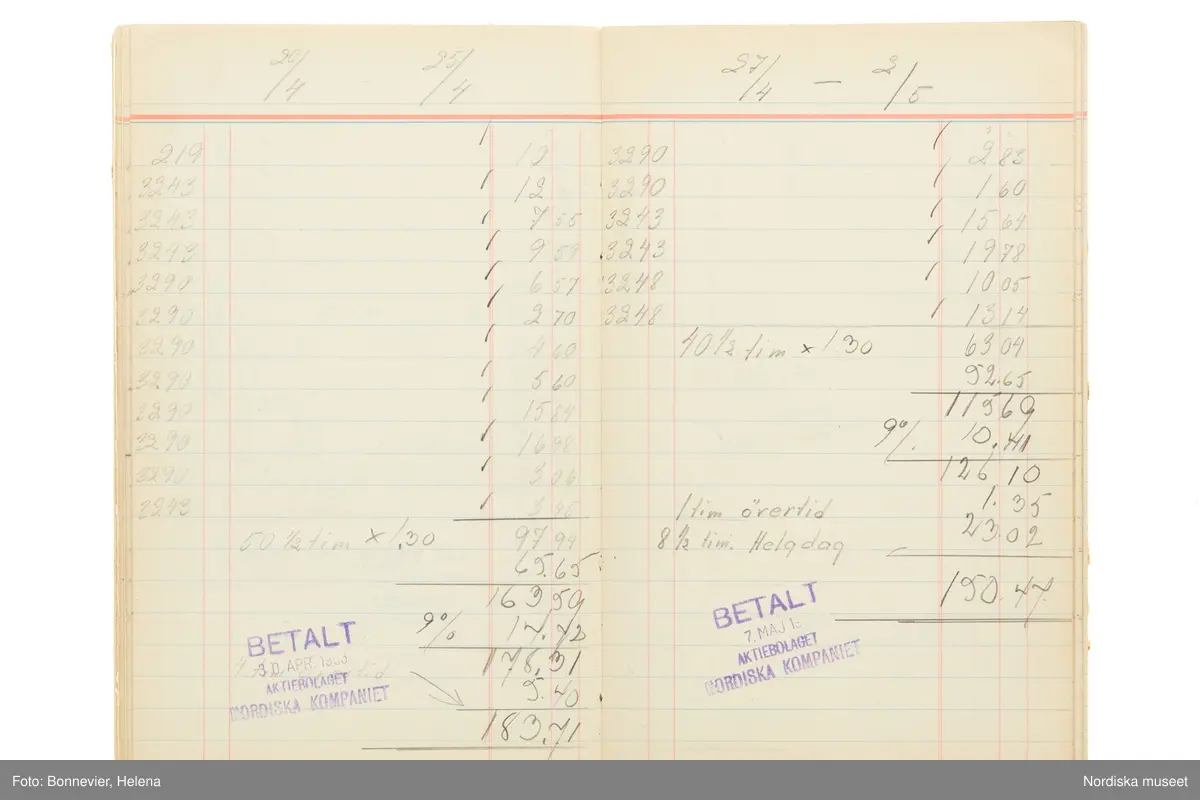 20/4 25/4
219 12
3243 12
3243 7 55
3243 9 59
3290 6 57
3290 2 70
3290 4 60
3290 5 60
3290 15 84
3290 16 98
3290 3 06
3243
97 94
50 1/2 tim × 1.30 65.65
163,59
9% 14.72
178,31
5.40
183.71
BETALT
30. APR.
AKTIEBOLAGET
NORDISKA KOMPANIET
27/4 — 2/5
3290 2 83
3290 1 60
3243 15 64
3243 19 78
3248 10 05
3248 13 14
63 04
40 1/2 tim × 1.30 52.65
115 69
9% 10.41
126,10
1 tim övertid 1.35
8 1/2 tim. Helgdag 23.02
150.47.
BETALT
7. MAJ
AKTIEBOLAGET
NORDISKA KOMPANIET
Foto: Bonnevier, Helena
Nordiska museet